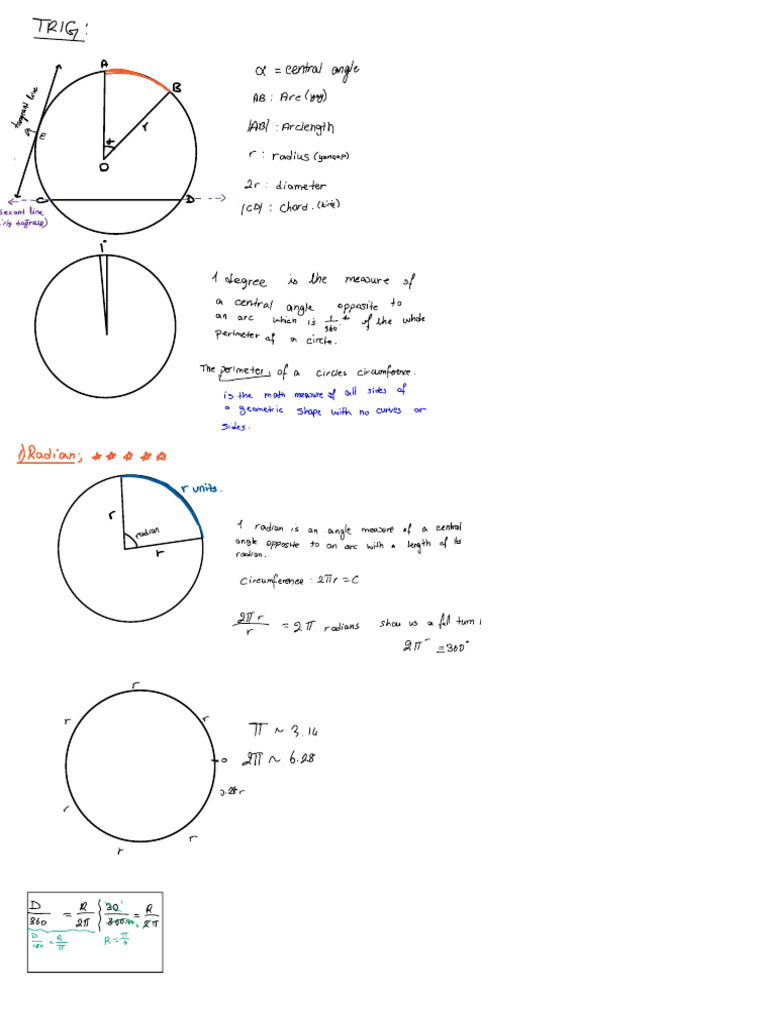 TRIG:
A
B
tangent line
E
α
r
O
C
D
secant line
α = central angle
AB : Arc (yay)
|AB| : Arclength
r : radius (yarıçap)
2r : diameter
|CD| : Chord. (kiriş)
1 degree is the measure of
a central angle opposite to
an arc which is 1/360 of the whole
perimeter of a circle.
The perimeter of a circles circumference.
is the math measure of all sides of
a geometric shape with no curves or
sides.
1) Radian;
r units.
r
radian
r
1 radian is an angle measure of a central
angle opposite to an arc with a length of its
radian.
Circumference : 2πr = C
2πr/r = 2π radians show us a full turn!
2π = 360°
r
r
r
0
0.28r
r
r
r
π ~ 3.14
2π ~ 6.28
D/360 = R/2π
30/360 = R/2π
D/180 = R/π
R = π/6